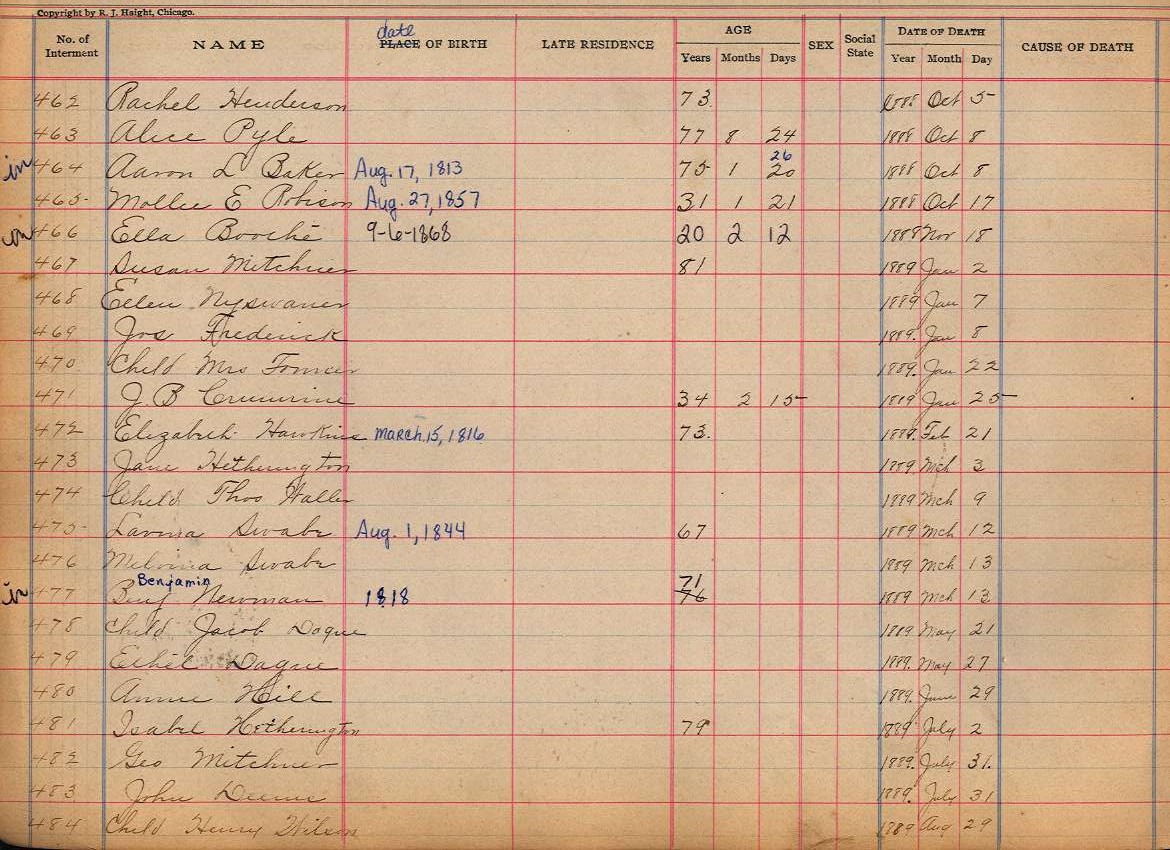 Copyright by R. J. Haight, Chicago.
No. of Interment NAME date PLACE OF BIRTH LATE RESIDENCE AGE Years Months Days SEX Social State DATE OF DEATH Year Month Day CAUSE OF DEATH
462 Rachel Henderson 73. 1888 Oct 5
463 Alice Pyle 77 8 24 1888 Oct 8
in 464 Aaron L Baker Aug. 17, 1813 75 1 26 20 1888 Oct 8
465 Mollie E Robison Aug. 27, 1857 31 1 21 1888 Oct 17
on 466 Ella Booché 9-6-1868 20 2 12 1888 Nov 18
467 Susan Mitchner 81 1889 Jan 2
468 Ellen Nyswaner 1889 Jan 7
469 Jos Frederick 1889. Jan 8
470 Child Mrs 1889. Jan 22
471 J. B Crumrine 34 2 15 1889 Jan 25
472 Elizabeth Hawkins March 15, 1816 73. 1889. Feb 21
473 Jane Hetherington 1889. Mch 3
474 Child Thos Waller 1889 Mch 9
475 Lavina Swabe Aug. 1, 1844 67 1889 Mch 12
476 Melvina Swabe 1889 Mch 13
Benjamin 71
in 477 Benj Newman 1818 76 1889 Mch 13
478 Child Jacob Dague 1889 May 21
479 Ethel Dague 1889. May 27
480 Annie Hill 1889. June 29
481 Isabel Hetherington 79 1889 July 2
482 Geo Mitchner 1889. July 31.
483 John Deems 1889. July 31
484 Child Henry Wilson 1889 Aug 29